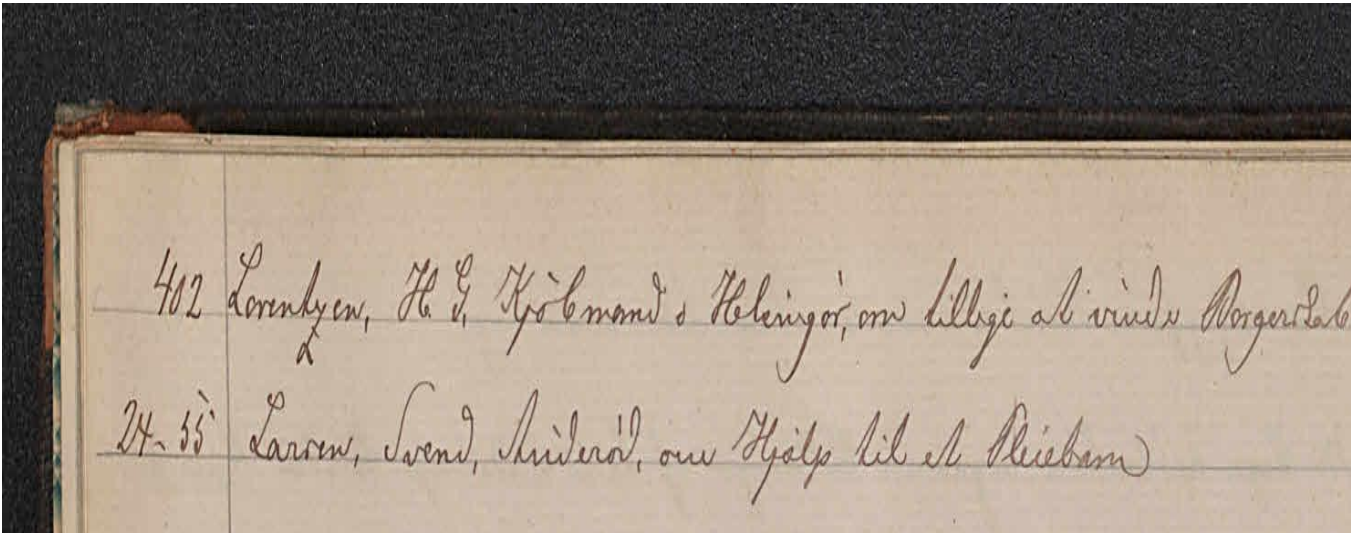 402 Lorentzen, H. G, Kjöbmand i Helsingör, om tillige at vinde Borgerskab
L
24-55 Larsen, Svend, om Hjælp til et Pleiebarn